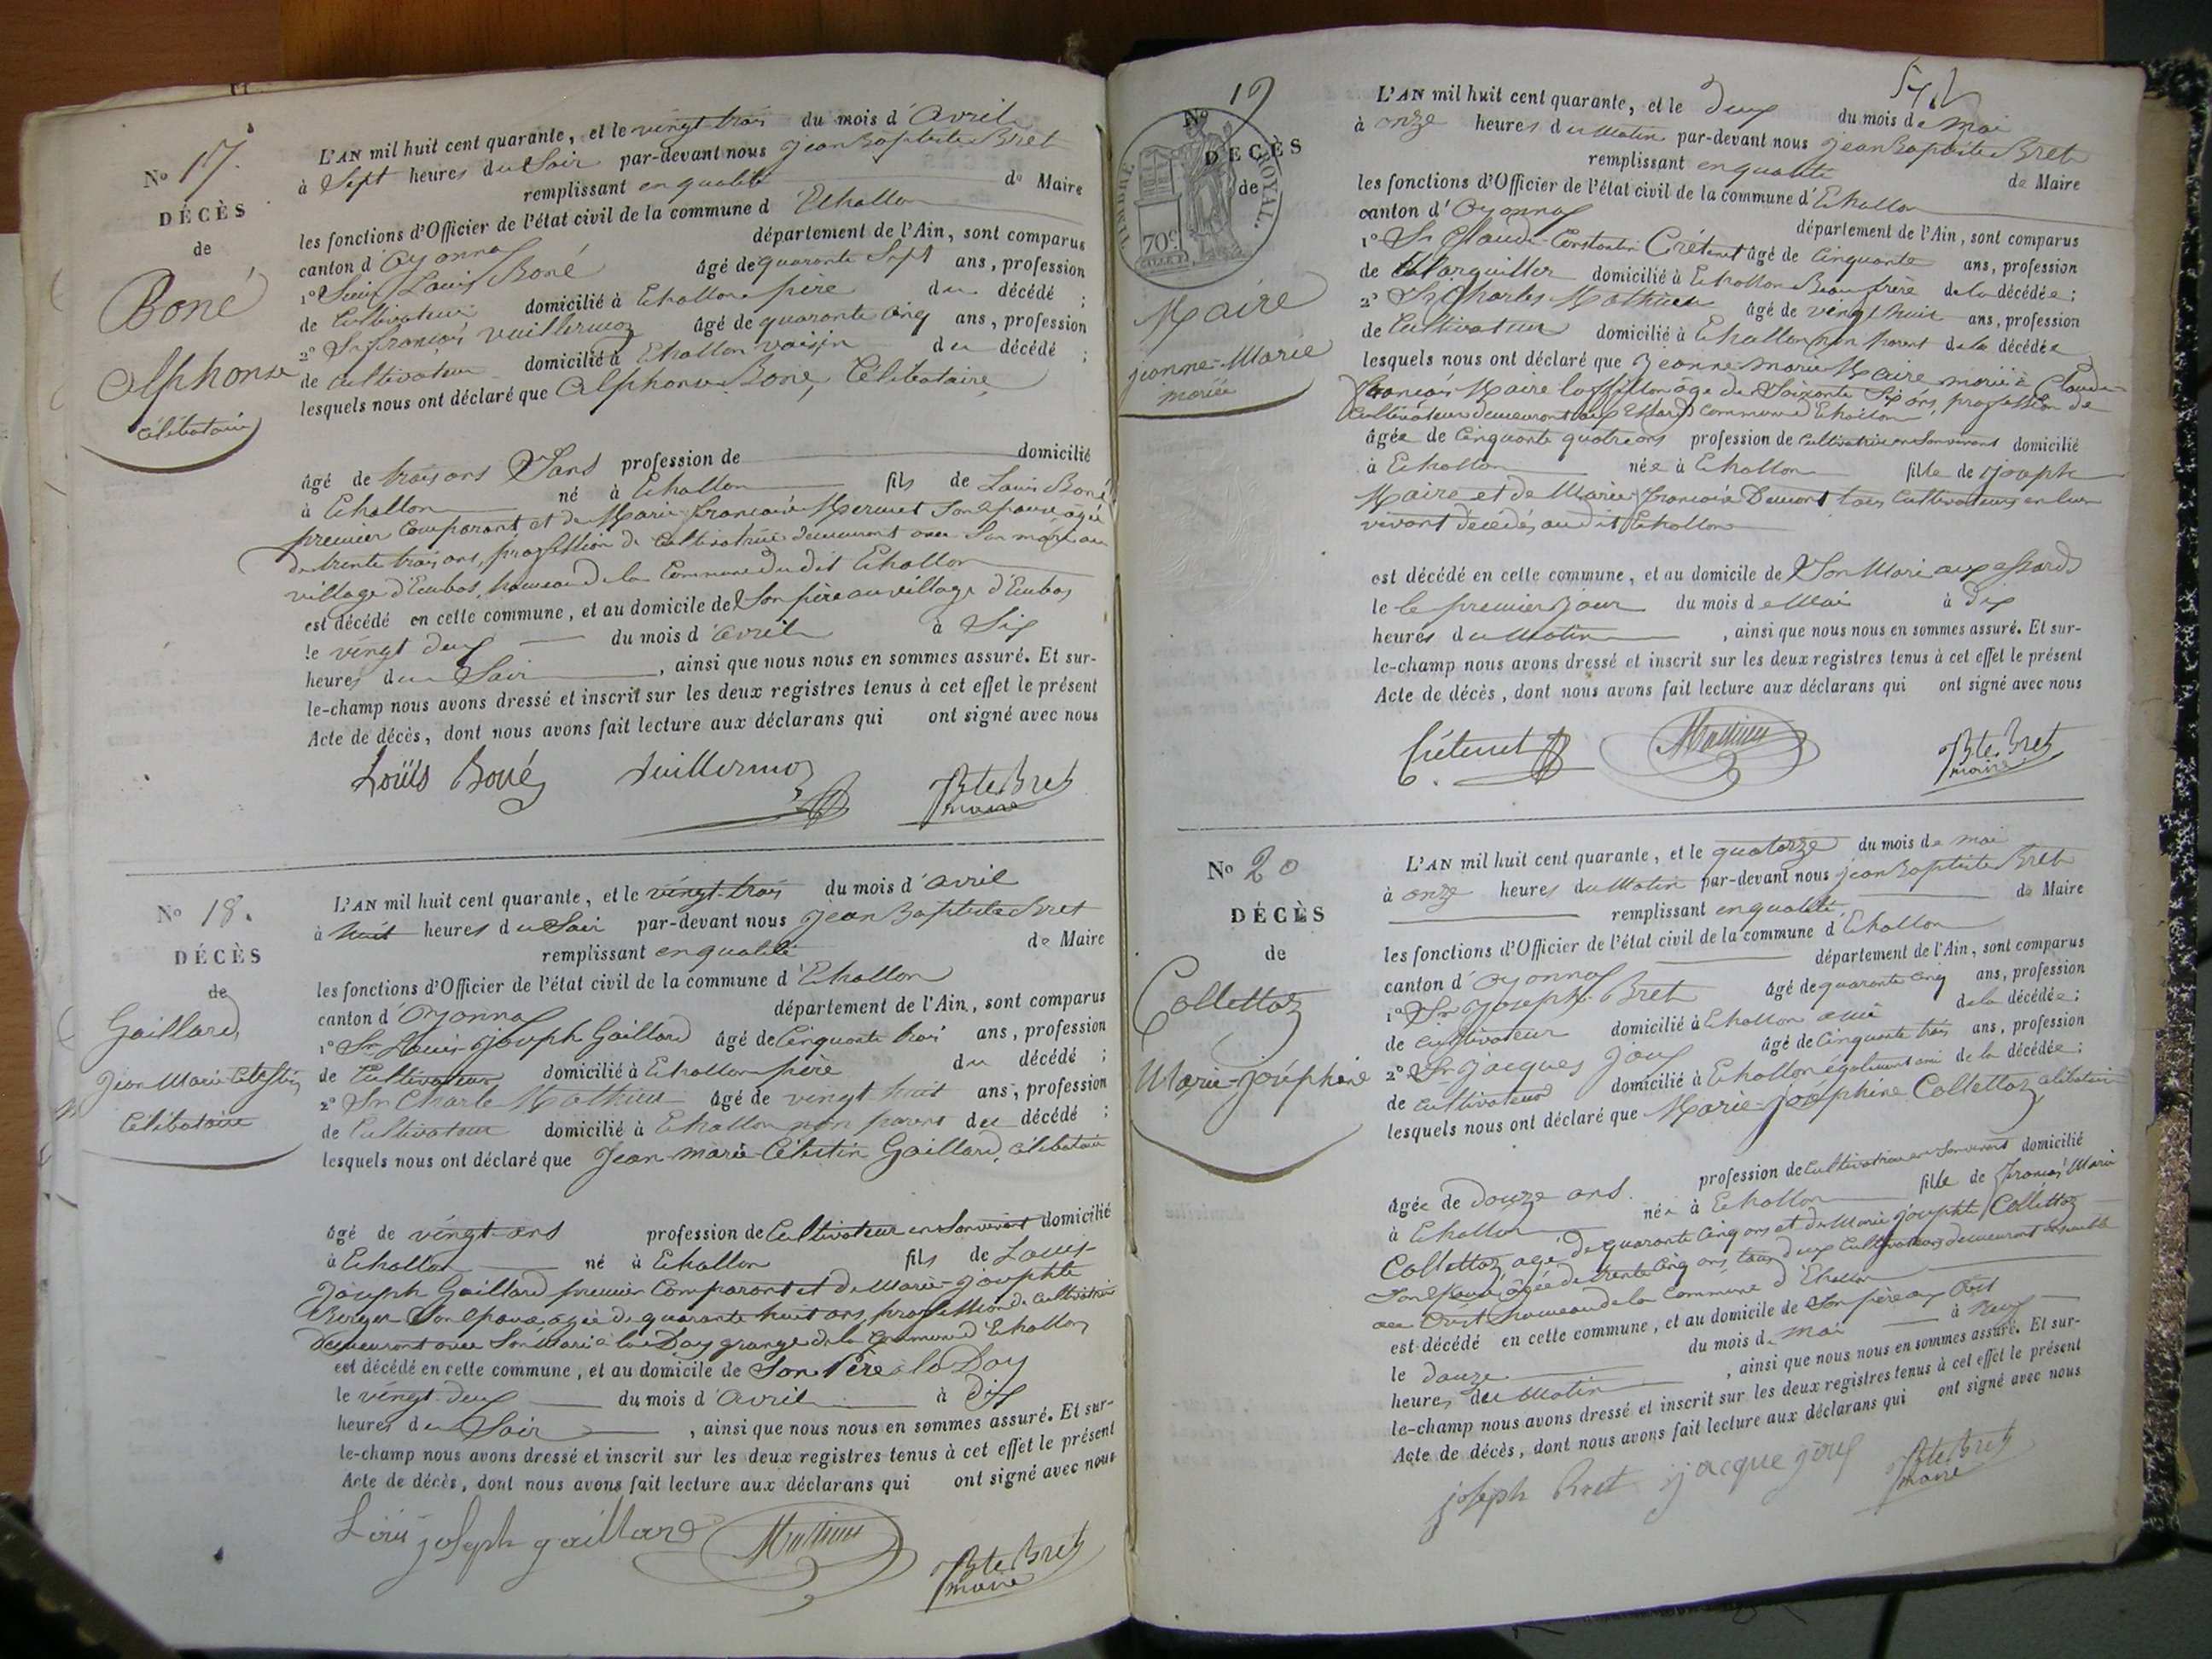 No 17.
DÉCÈS
de
Boné
Alphonse
célibataire
L'AN mil huit cent quarante, et le vingt-trois du mois d'Avril
à Sept heures du Soir par-devant nous jean Baptiste Bret
remplissant en qualité de Maire
les fonctions d'Officier de l'état civil de la commune d Echallon
canton d'Oyonnax département de l'Ain, sont comparus
1° Sieur Louis Boné âgé de quarante Sept ans, profession
de Cultivateur domicilié à Echallon père du décédé;
2° Sr françois vuillermoz âgé de quarante cinq ans, profession
de cultivateur domicilié à Echallon voisin du décédé;
lesquels nous ont déclaré que Alphonse Boné, Célibataire,
âgé de trois ans Sans profession de domicilié
à Echallon né à Echallon fils de Louis Boné
premier Comparant et de Marie françoise Mermet Son épouse âgée
de trente trois ans, profession de Cultivatrice demeurant avec Son mari au
village d'Embos, hameau de la Commune du dit Echallon
est décédé en cette commune, et au domicile de Son père au village d'Embos
le vingt deux du mois d'avril à Six
heures du Soir, ainsi que nous nous en sommes assuré. Et sur-
le-champ nous avons dressé et inscrit sur les deux registres tenus à cet effet le présent
Acte de décès, dont nous avons fait lecture aux déclarans qui ont signé avec nous
Loüis Boné Vuillermoz Bte Bret
maire
No 18.
DÉCÈS
de
Gaillard
Jean Marie Célestin
Célibataire
L'AN mil huit cent quarante, et le vingt-trois du mois d'avril
à huit heures du Soir par-devant nous Jean Baptiste Bret
remplissant en qualité de Maire
les fonctions d'Officier de l'état civil de la commune d'Echallon
canton d'Oyonnax département de l'Ain, sont comparus
1° Sr Louis Joseph Gaillard âgé de Cinquante trois ans, profession
de Cultivateur domicilié à Echallon père du décédé;
2° Sr Charle Mathieu âgé de vingt huit ans, profession
de Cultivateur domicilié à Echallon non parent du décédé;
lesquels nous ont déclaré que Jean-marie-Célestin Gaillard, célibataire
âgé de vingt-ans profession de Cultivateur en Son vivant domicilié
à Echallon né à Echallon fils de Louis
Joseph Gaillard premier Comparant et de Marie-josephte
Burger Son épouse âgée de quarante huit ans, profession de Cultivatrice
demeurant avec Son Mari à la Doy grange de la Commune d'Echallon
est décédé en cette commune, et au domicile de Son Père à la Doy
le vingt-deux du mois d'avril à dix
heures du Soir, ainsi que nous nous en sommes assuré. Et sur-
le-champ nous avons dressé et inscrit sur les deux registres tenus à cet effet le présent
Acte de décès, dont nous avons fait lecture aux déclarans qui ont signé avec nous
Loüis joseph gaillard Mathieu Bte Bret
maire
No 19
DÉCÈS
de
TIMBRE ROYAL.
70c
Maire
jeanne-Marie
mariée
L'AN mil huit cent quarante, et le deux du mois de mai
à onze heures du Matin par-devant nous jean Baptiste Bret
remplissant en qualité de Maire
les fonctions d'Officier de l'état civil de la commune d'Echallon
canton d'Oyonnax département de l'Ain, sont comparus
1° Sr Claude-Constantin Crétenet âgé de Cinquante ans, profession
de Marguiller domicilié à Echallon Beau frère de la décédée;
2° Sr Charles Mathieu âgé de vingt huit ans, profession
de Cultivateur domicilié à Echallon non parent de la décédée
lesquels nous ont déclaré que Jeanne marie Maire mariée à Claude-
françois Maire âgé de Soixante Six ans, profession de
Cultivateur demeurant aux Essards commune d'Echallon
âgée de Cinquante quatre ans profession de cultivatrice en Son vivant domicilié
à Echallon née à Echallon fille de joseph
Maire et de Marie françoise Dumont tous Cultivateurs en leur
vivant décédés au dit Echallon
est décédé en cette commune, et au domicile de Son Mari aux essards
le le premier jour du mois de Mai à dix
heures du Matin, ainsi que nous nous en sommes assuré. Et sur-
le-champ nous avons dressé et inscrit sur les deux registres tenus à cet effet le présent
Acte de décès, dont nous avons fait lecture aux déclarans qui ont signé avec nous
Crétenet Mathieu Bte Bret
maire
No 20
DÉCÈS
de
Collettaz
Marie-joséphine
L'AN mil huit cent quarante, et le quatorze du mois de mai
à onze heures du Matin par-devant nous jean Baptiste Bret
remplissant en qualité de Maire
les fonctions d'Officier de l'état civil de la commune d'Echallon
canton d'Oyonnax département de l'Ain, sont comparus
1° Sr Joseph Bret âgé de quarante cinq ans, profession
de cultivateur domicilié à Echallon ami de la décédée;
2° Sr Jacques Joux âgé de Cinquante trois ans, profession
de cultivateur domicilié à Echallon également ami de la décédée;
lesquels nous ont déclaré que Marie-joséphine Collettaz célibataire
âgée de douze ans. profession de Cultivatrice en Son vivant domicilié
à Echallon née à Echallon fille de françois Marie
Collettaz agé de quarante Cinq ans et de Marie josephte Collettaz
Son épouse âgée de trente Cinq ans, tous deux Cultivateurs demeurant ensemble
au Crêt hameau de la commune d'Echallon
est décédé en cette commune, et au domicile de Son père au Crêt
le douze du mois de mai à Neuf
heures du Matin, ainsi que nous nous en sommes assuré. Et sur-
le-champ nous avons dressé et inscrit sur les deux registres tenus à cet effet le présent
Acte de décès, dont nous avons fait lecture aux déclarans qui ont signé avec nous
joseph Bret jacque joux Bte Bret
maire